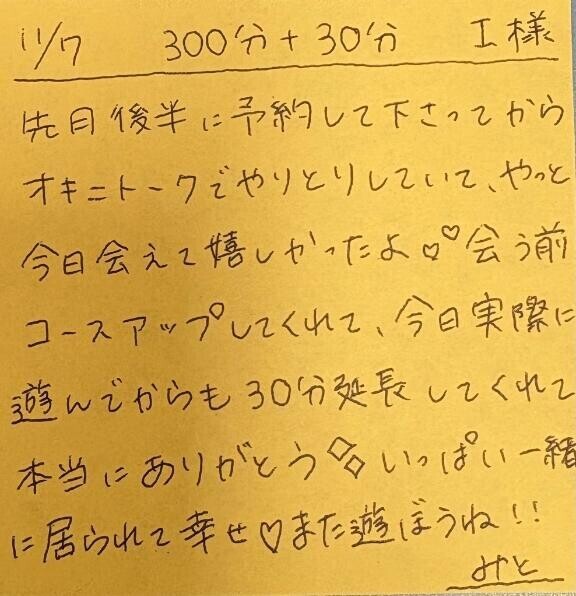 11/7 300分+30分 I様
先月後半に予約して下さってから
オキニトークでやりとりしていて、やっと
今日会えて嬉しかったよ♡♡会う前
コースアップしてくれて、今日実際に
遊んでからも30分延長してくれて
本当にありがとう◇◇いっぱい一緒
に居られて幸せ♡また遊ぼうね!!
みと